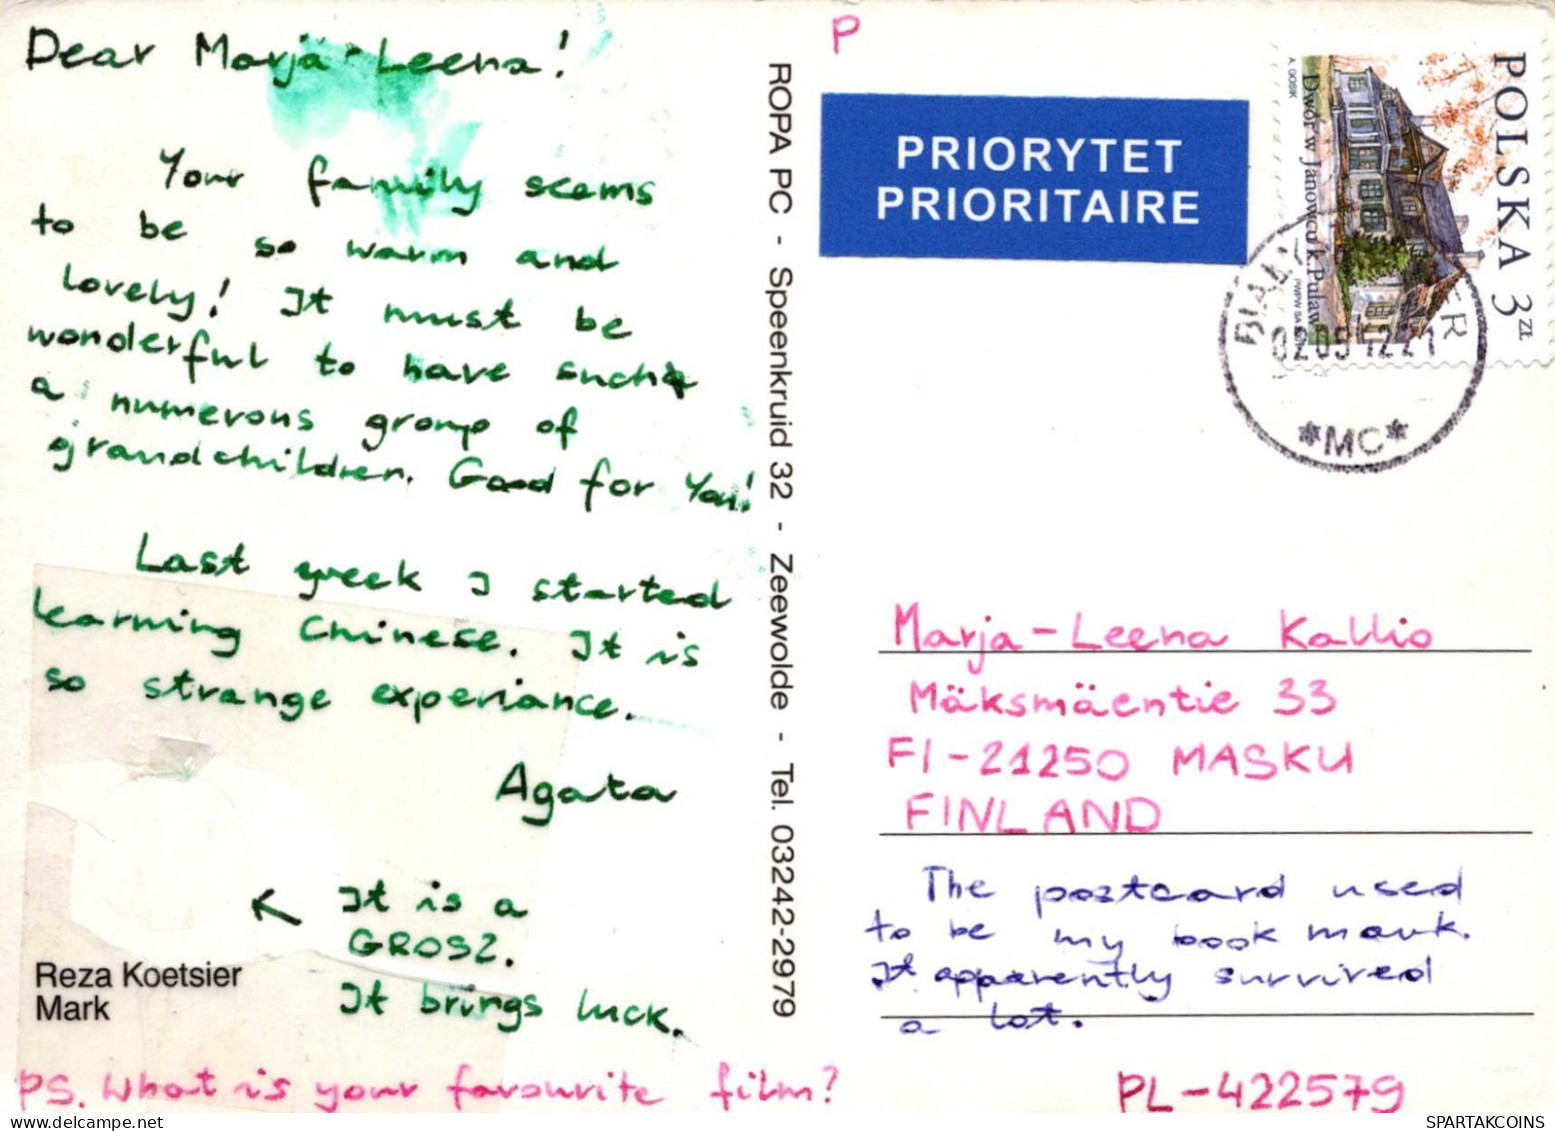 Dear Marja-Leena!
Your family seems
to be so warm and
lovely! It must be
wonderful to have such
a numerous group of
grandchildren. Good for You!
Last week I started
learning Chinese. It is
so strange experiance.
Agata
It is a
GROSZ.
It brings luck.
Reza Koetsier
Mark
PS. What is your favourite film?
ROPA PC - Speenkruid 32 - Zeewolde - Tel. 03242-2979
P
PRIORYTET
PRIORITAIRE
POLSKA 3 ZŁ
Dwór w Janowcu k. Puław
A. GOSIK
PWPW SA
*MC*
Marja-Leena Kallio
Mäksmäentie 33
FI-21250 MASKU
FINLAND
The postcard used
to be my book mark.
It apparently survived
a lot.
PL-422579
SPARTAKCOINS